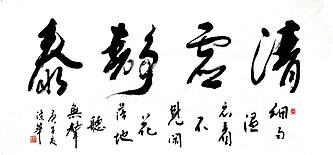 清虚静泰
細雨
湿
衣看
不
見閑
花
落地
聽
無聲
庚子夏